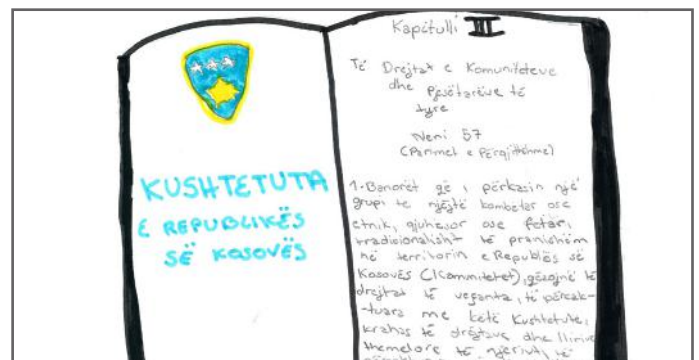 KUSHTETUTA
E REPUBLIKËS
SË KOSOVËS
Kapitulli III
Të Drejtat e Komuniteteve
dhe Pjesëtarëve të
tyre
Neni 57
(Parimet e Përgjithshme)
1. Banorët që i përkasin një
grupi të njëjtë kombëtar ose
etnik, gjuhësor ose fetar,
tradicionalisht të pranishëm
në territorin e Republës së
Kosovës (Komunitetet), gëzojnë të
drejtat të veçanta, të përcak-
-tuara me këtë Kushtetutë,
krahas të drejtave dhe lirive
themelore të njeriut, të